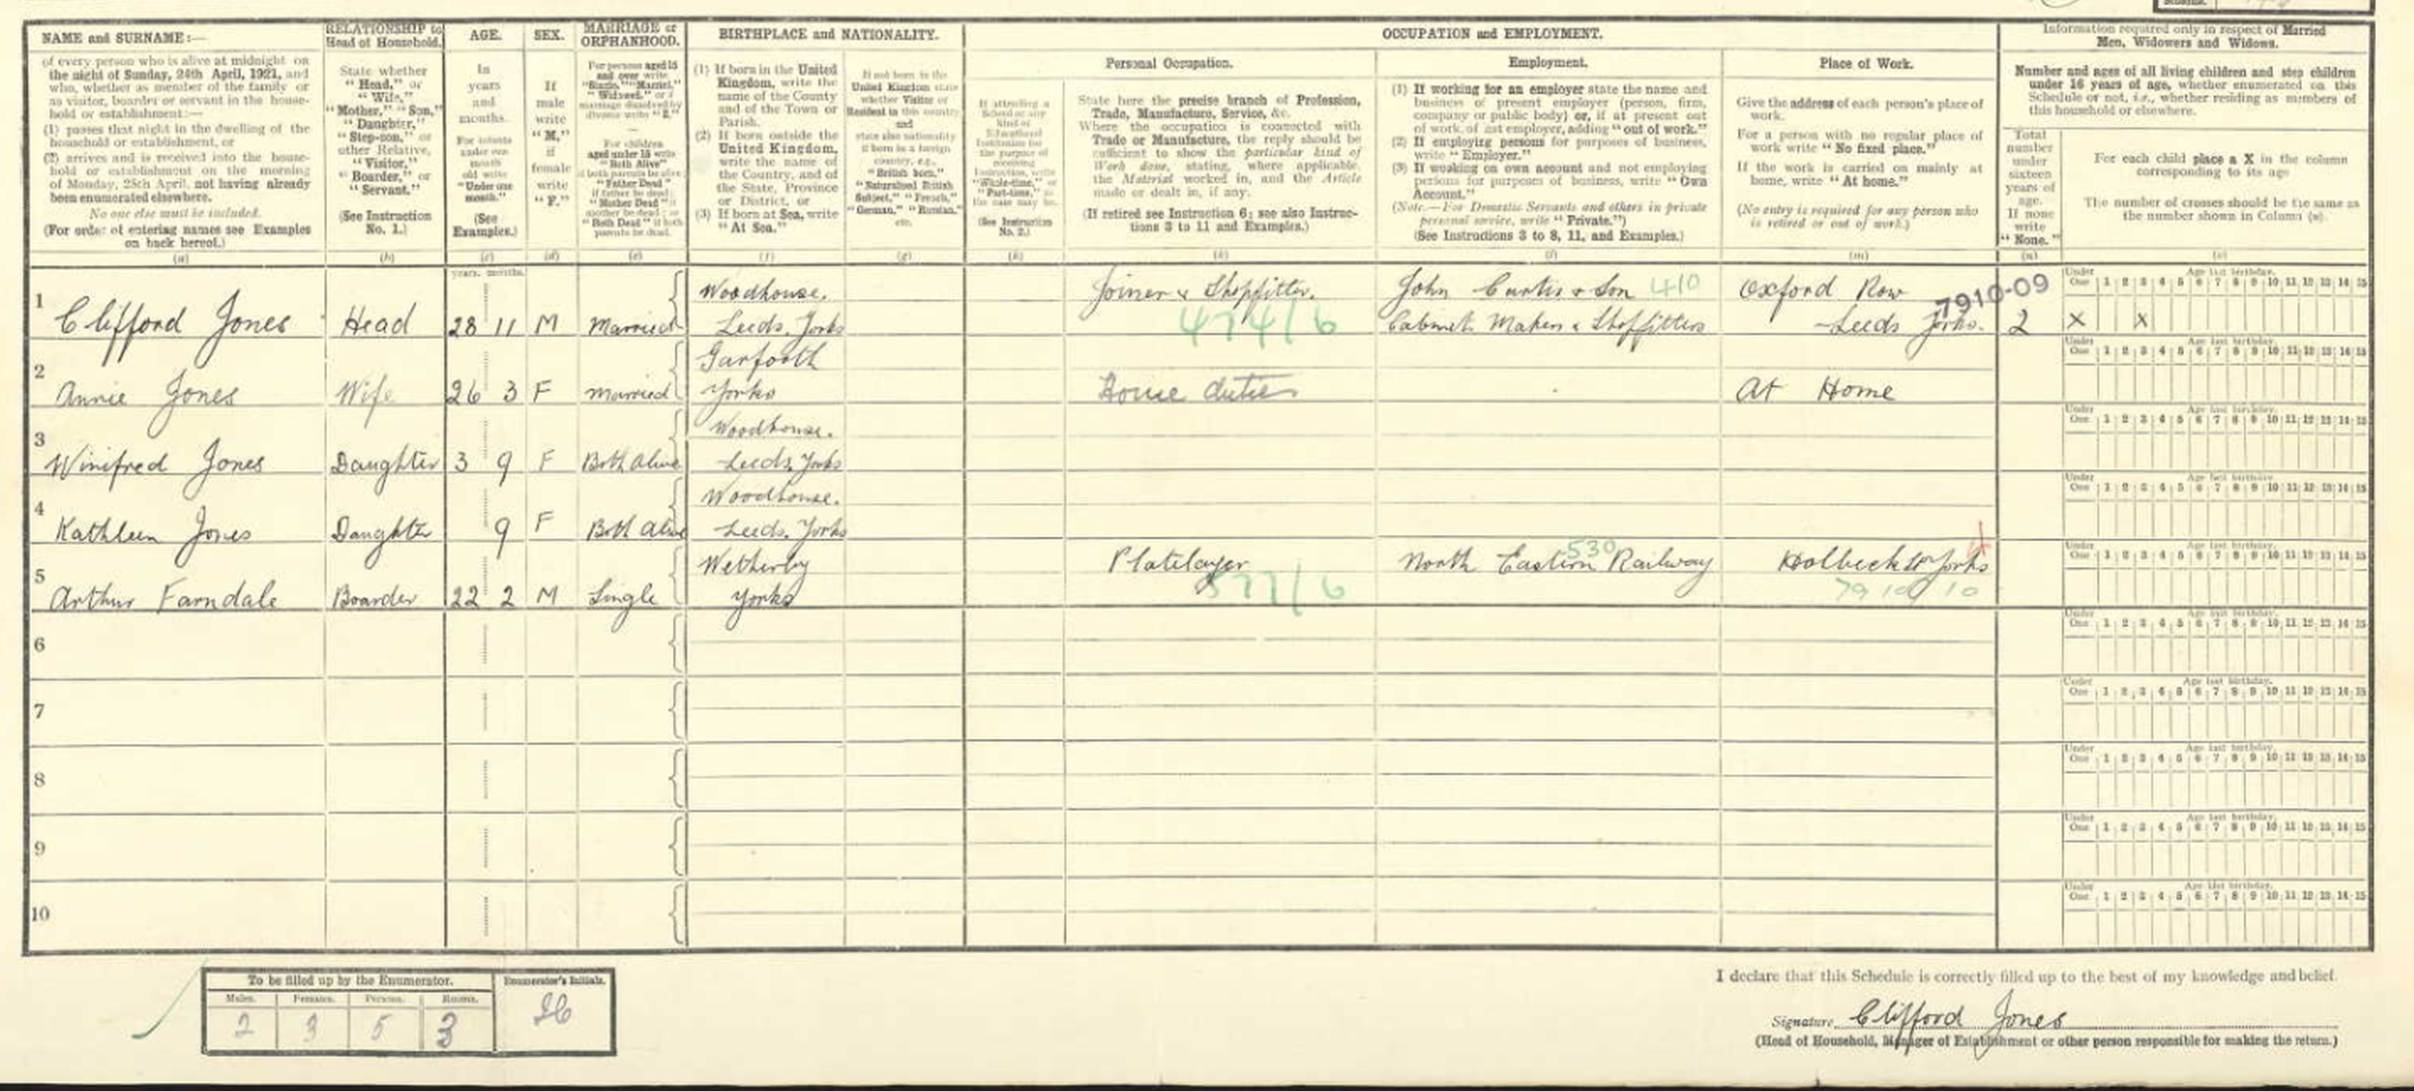 Schedule.
NAME and SURNAME :—
of every person who is alive at midnight on
the night of Sunday, 24th April, 1921, and
who, whether as member of the family or
as visitor, boarder or servant in the house-
hold or establishment:—
(1) passes that night in the dwelling of the
household or establishment, or
(2) arrives and is received into the house-
hold or establishment on the morning
of Monday, 25th April, not having already
been enumerated elsewhere.
No one else must be included.
(For order of entering names see Examples
on back hereof.)
(a)
RELATIONSHIP to
Head of Household.
State whether
"Head," or
"Wife,"
"Mother," "Son,"
"Daughter,"
"Step-son," or
other Relative,
"Visitor,"
"Boarder," or
"Servant."
(See Instruction
No. 1.)
(b)
AGE.
In
years
and
months.
For infants
under one
month
old write
"Under one
month."
(See
Examples.)
(c)
SEX.
If
male
write
"M."
if
female
write
"F."
(d)
MARRIAGE or
ORPHANHOOD.
For persons aged 15
and over write
"Single," "Married,"
"Widowed," or if
marriage dissolved by
divorce write "D."
For children
aged under 15 write
"Both Alive"
if both parents be alive
"Father Dead"
if father be dead;
"Mother Dead" if
mother be dead; or
"Both Dead" if both
parents be dead.
(e)
BIRTHPLACE and NATIONALITY.
(1) If born in the United
Kingdom, write the
name of the County
and of the Town or
Parish.
(2) If born outside the
United Kingdom,
write the name of
the Country, and of
the State, Province
or District, or
(3) If born at Sea, write
"At Sea."
(f)
If not born in the
United Kingdom state
whether Visitor or
Resident in this country
and
state also nationality
if born in a foreign
country, e.g.,
"British born,"
"Naturalised British
Subject," "French,"
"German," "Russian,"
etc.
(g)
If attending a
School or any
kind of
Educational
Institution for
the purpose of
receiving
Instruction, write
"Whole-time," or
"Part-time," as
the case may be.
(See Instruction
No. 2.)
(h)
OCCUPATION and EMPLOYMENT.
Personal Occupation.
State here the precise branch of Profession,
Trade, Manufacture, Service, &c.
Where the occupation is connected with
Trade or Manufacture, the reply should be
sufficient to show the particular kind of
Work done, stating, where applicable,
the Material worked in, and the Article
made or dealt in, if any.
(If retired see Instruction 6; see also Instruc-
tions 3 to 11 and Examples.)
(k)
Employment.
(1) If working for an employer state the name and
business of present employer (person, firm,
company or public body) or, if at present out
of work, of last employer, adding "out of work."
(2) If employing persons for purposes of business,
write "Employer."
(3) If working on own account and not employing
persons for purposes of business, write "Own
Account."
(Note.—For Domestic Servants and others in private
personal service, write "Private.")
(See Instructions 3 to 8, 11, and Examples.)
(l)
Place of Work.
Give the address of each person's place of
work.
For a person with no regular place of
work write "No fixed place."
If the work is carried on mainly at
home, write "At home."
(No entry is required for any person who
is retired or out of work.)
(m)
Information required only in respect of Married
Men, Widowers and Widows.
Number and ages of all living children and step children
under 16 years of age, whether enumerated on this
Schedule or not, i.e., whether residing as members of
this household or elsewhere.
Total
number
under
sixteen
years of
age.
If none
write
"None."
(n)
For each child place a X in the column
corresponding to its age
The number of crosses should be the same as
the number shown in Column (n).
(o)
years. months.
1 Clifford Jones Head 28 11 M Married Woodhouse. Leeds, Yorks
Joiner & Shopfitter. 474/6
John Curtis & Son 410
Cabinet Makers & Shopfitters
Oxford Row 7910-09
Leeds Yorks. 2 X X
2 Annie Jones Wife 26 3 F Married Garforth Yorks House duties At Home
3 Winifred Jones Daughter 3 9 F Both Alive Woodhouse. Leeds, Yorks
4 Kathleen Jones Daughter 9 F Both Alive Woodhouse. Leeds, Yorks
5 Arthur Farndale Boarder 22 2 M Single Wetherby Yorks
Platelayer 577/6
North Eastern Railway 530
Holbeck Yorks
7910/10
6
7
8
9
10
Under One 1 2 3 4 5 6 7 8 9 10 11 12 13 14 15
Age last birthday.
To be filled up by the Enumerator.
Males. Females. Persons. Rooms.
2 3 5 3
Enumerator's Initials.
I declare that this Schedule is correctly filled up to the best of my knowledge and belief.
Signature Clifford Jones
(Head of Household, Manager of Establishment or other person responsible for making the return.)